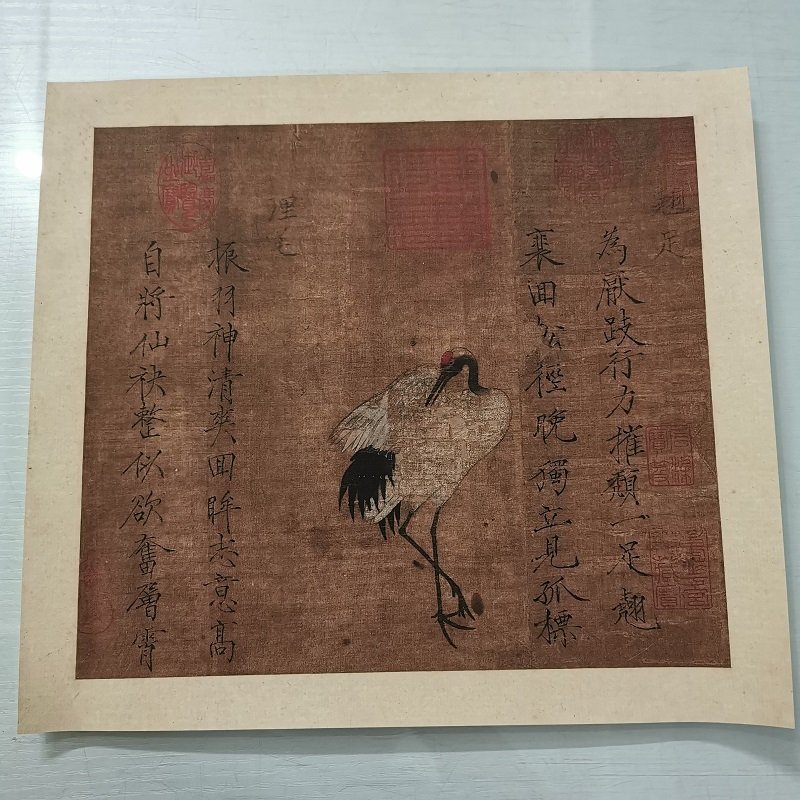 足
為厭跂行力摧頹一足翹
裵囬徑晚獨立見孤標
理毛
振羽神清爽囬眸志意高
自將仙袂整似欲奮層霄